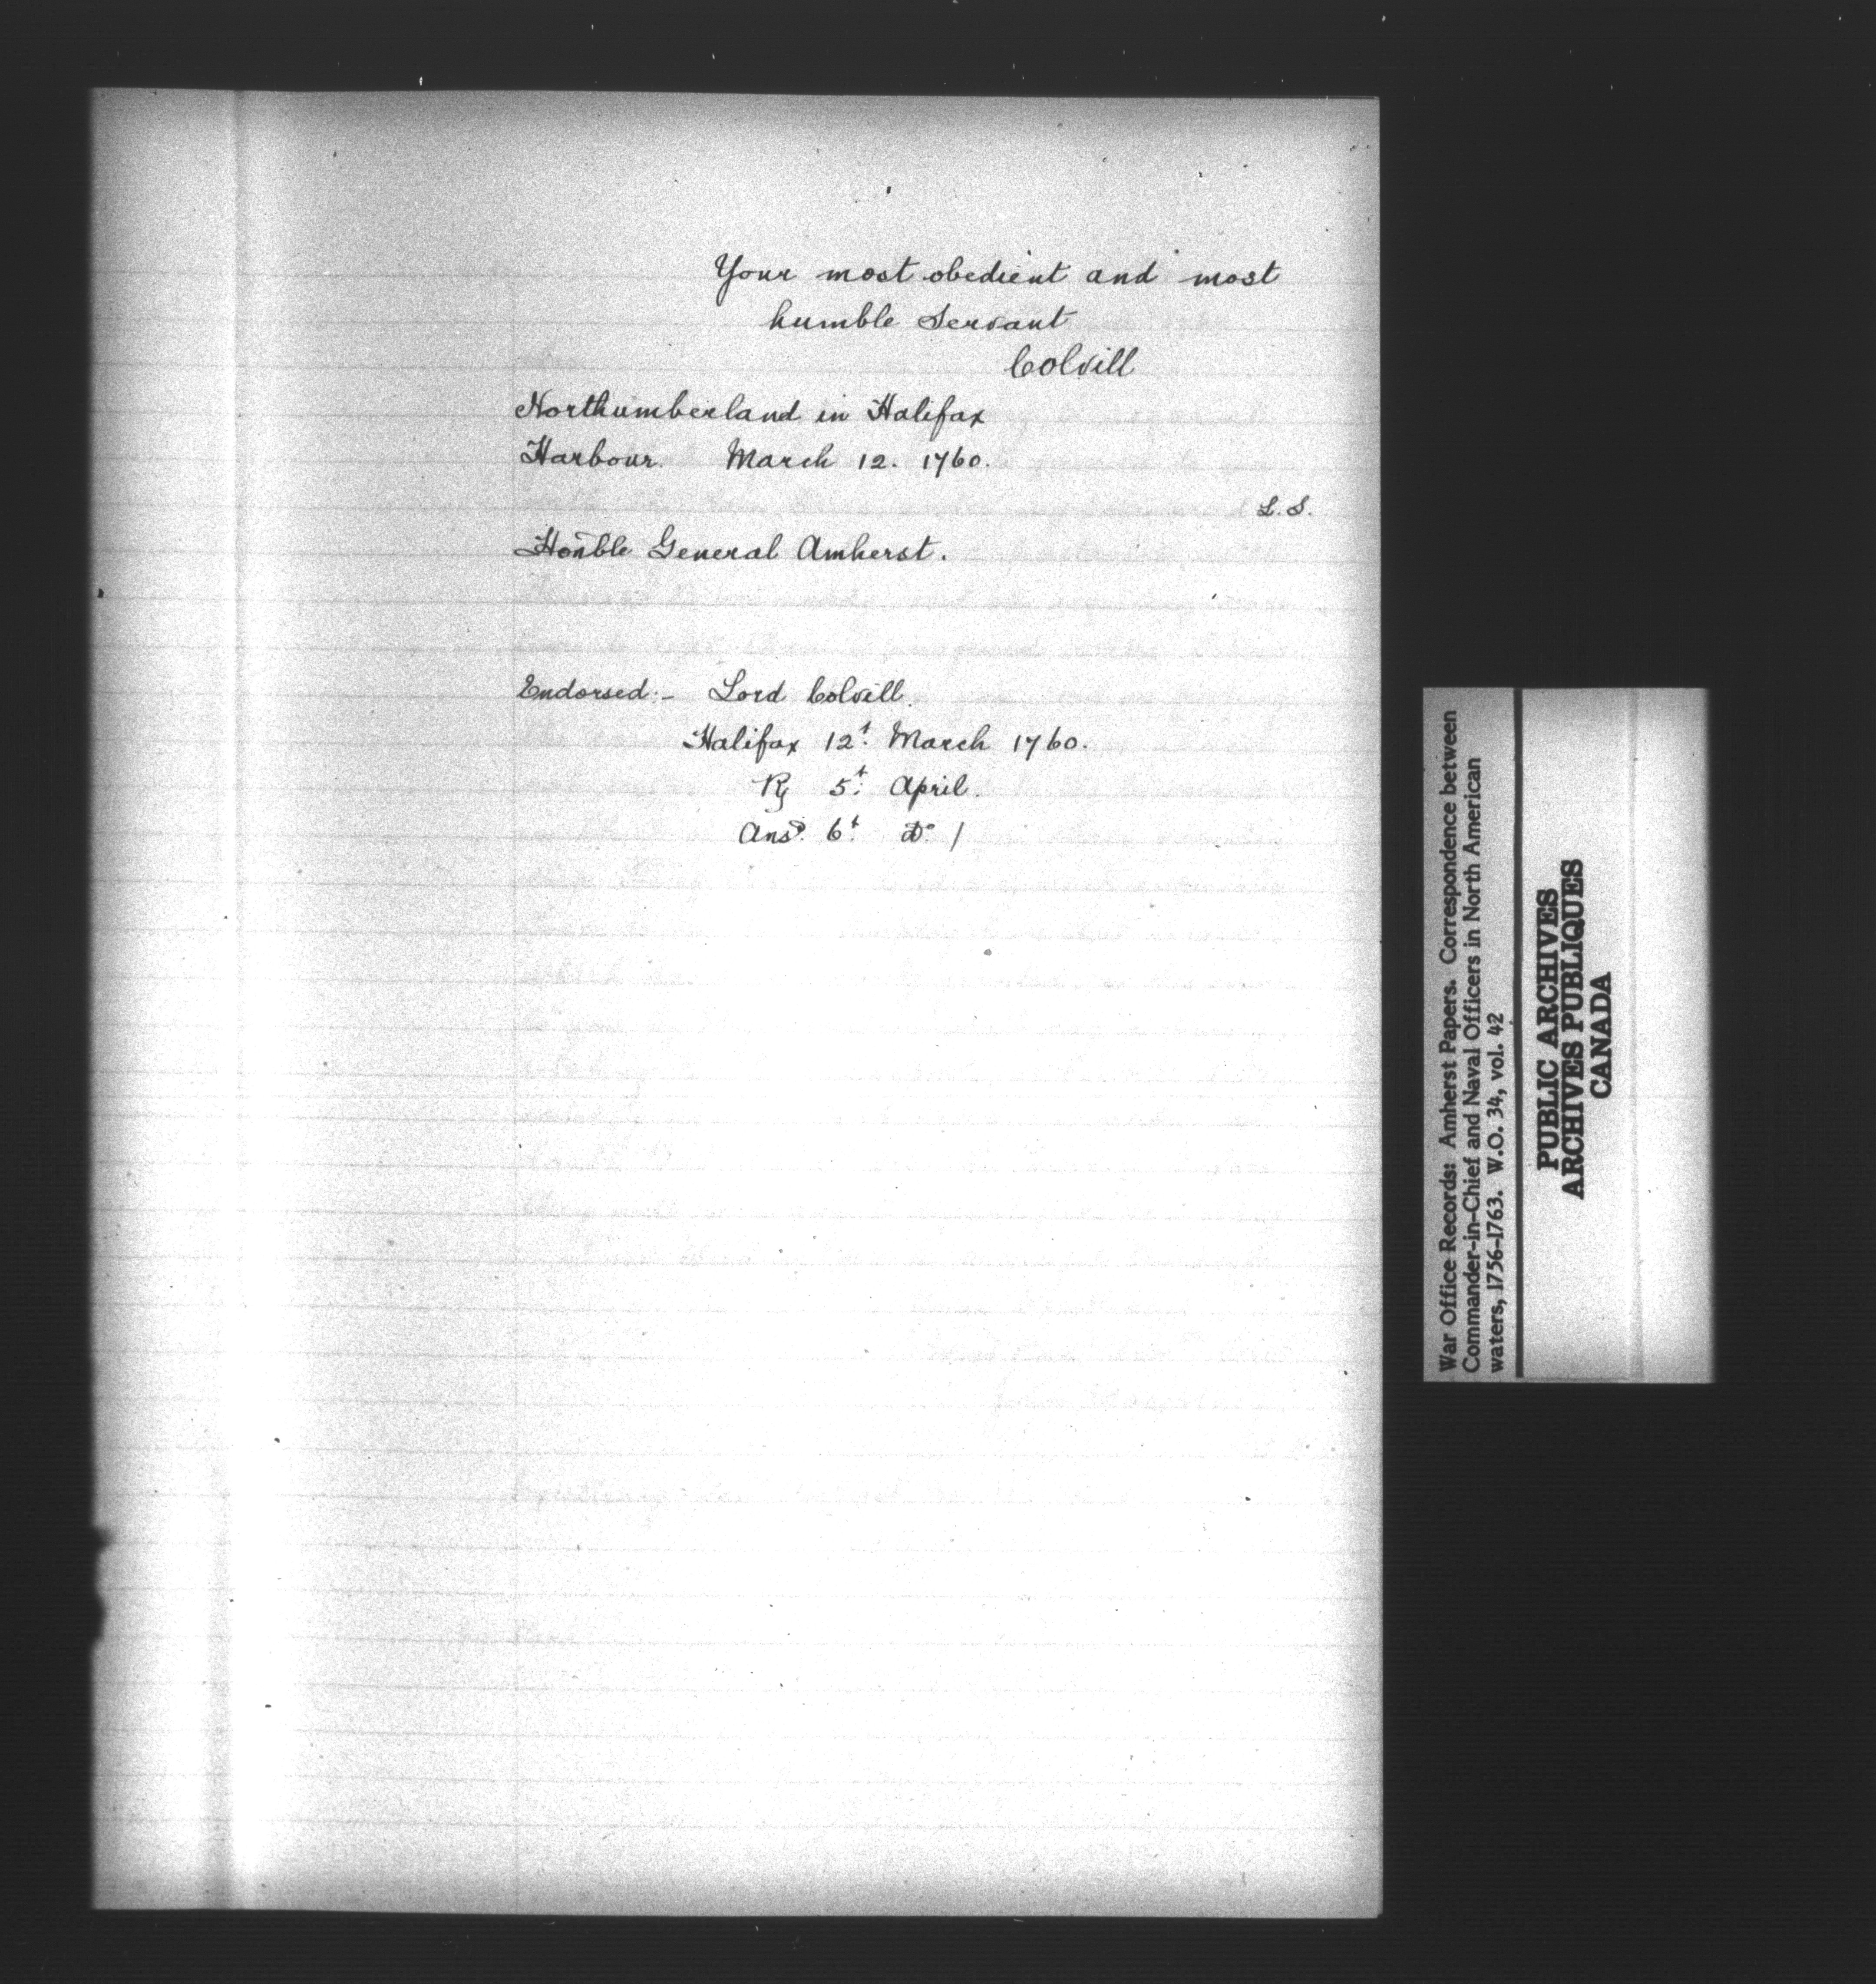 Your most obedient and most
humble Servant
Colvill
Northumberland in Halifax
Harbour. March 12. 1760.
L.S.
Honble General Amherst.
Endorsed:- Lord Colvill.
Halifax 12t. March 1760.
Rx 5t. April.
Ansd. 6t. Do. /
War Office Records: Amherst Papers. Correspondence between
Commander-in-Chief and Naval Officers in North American
waters, 1756-1763. W.O. 34, vol. 42
PUBLIC ARCHIVES
ARCHIVES PUBLIQUES
CANADA